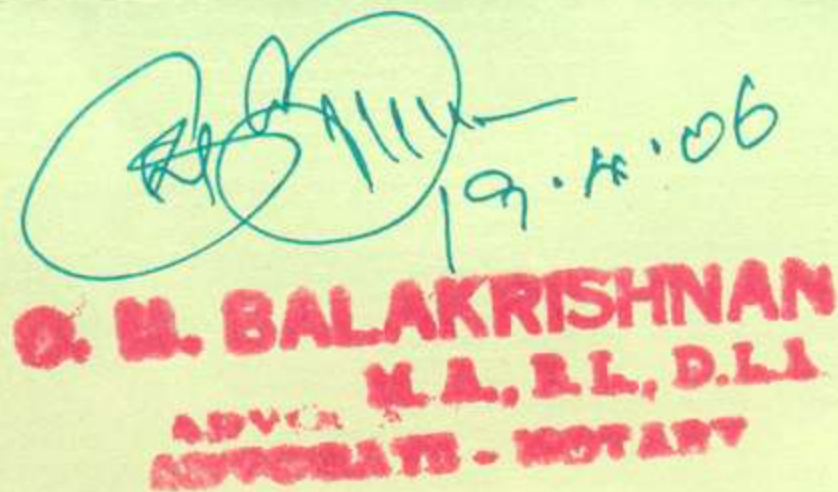 19.4.06
O. M. BALAKRISHNAN
M.A., B.L., D.L.L
ADVOCATE - NOTARY